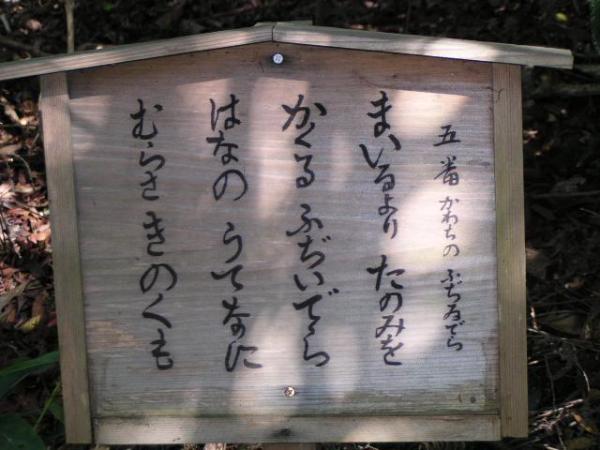 五番 かわちの ふぢゐでら
まいるより たのみを
かくる ふぢいでら
はなの うてなに
むらさきのくも